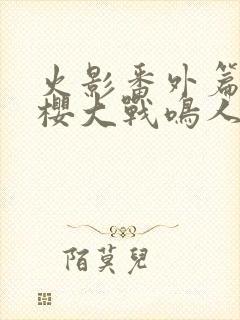 火影番外篇
櫻大戰鳴人
陌莫兒